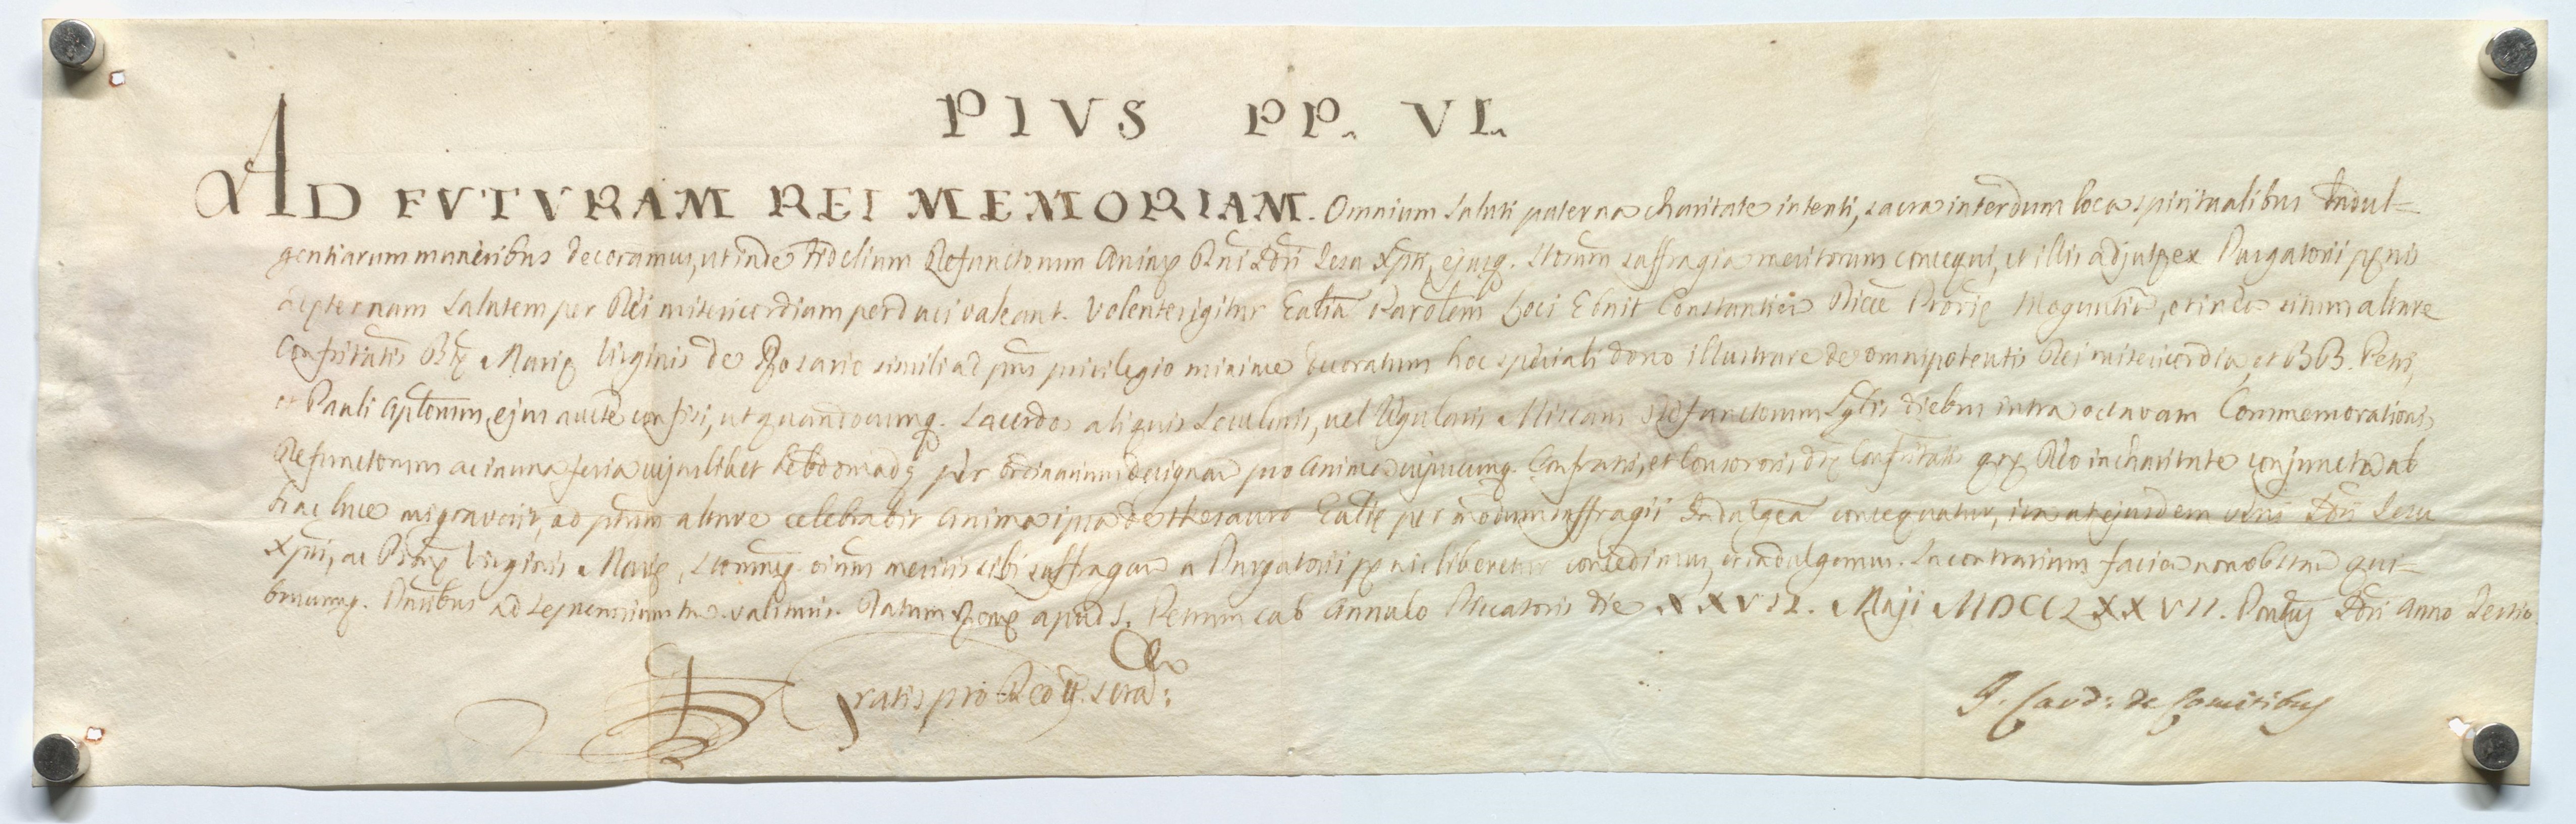 PIVS PP. VI.
AD FVTVRAM REI MEMORIAM. Omnium saluti paterna charitate intenti, sacra interdum loca spiritualibus Indul-
gentiarum muneribus decoramus, ut inde Fidelium Defunctorum Animę Dni Jesu Xpti, ejusq. Storum suffragia meritorum consequi, et illis adjutę ex Purgatorii pęnis
ad ęternam salutem per Dei misericordiam perduci valeant. Volentes igitur Ecclię Parolem loci Constantien Diec Moguntin, et in ea situm altare
Confritatis Btę Marię Virginis de Rosario simili ad pns privilegio minime decoratum hoc speciali dono illustrare de omnipotentis Dei misericordia, et BB. Petri,
et Pauli Aplorum ejus aucte confisi, ut quandocumq. Sacerdos aliquis Secularis, vel Regularis Missam Defunctorum diebus intra octavam Commemorationis
Defunctorum ac in una feria cujuslibet hebdomadę per ordinarium designan pro Anima cujuscumq. Confratris, et Consororis dtę Confritatis quę Deo in charitate conjuncta ab
hac luce migraverit, ad altare celebrabit anima ipsa de thesauro Eclię per modum suffragii Indulgeã consequatur, ita ut ejusdem Dni Jesu
Xpti, ac Btmę Virginis Marię, Storumq. oium meritis sibi suffragan a Purgatorii pęnis liberetur concedimus, et indulgemus. In contrarium facien non obstan qui-
buscumq. Pntibus ad Septennium tm. valituris. Datum Romę apud S. Petrum sub Annulo Piscatoris die XXVII. Maji MDCCLXXVII. Pontus Nri Anno Tertio.
Gratis pro Deo et Scra:
J. Card: de Comitibus